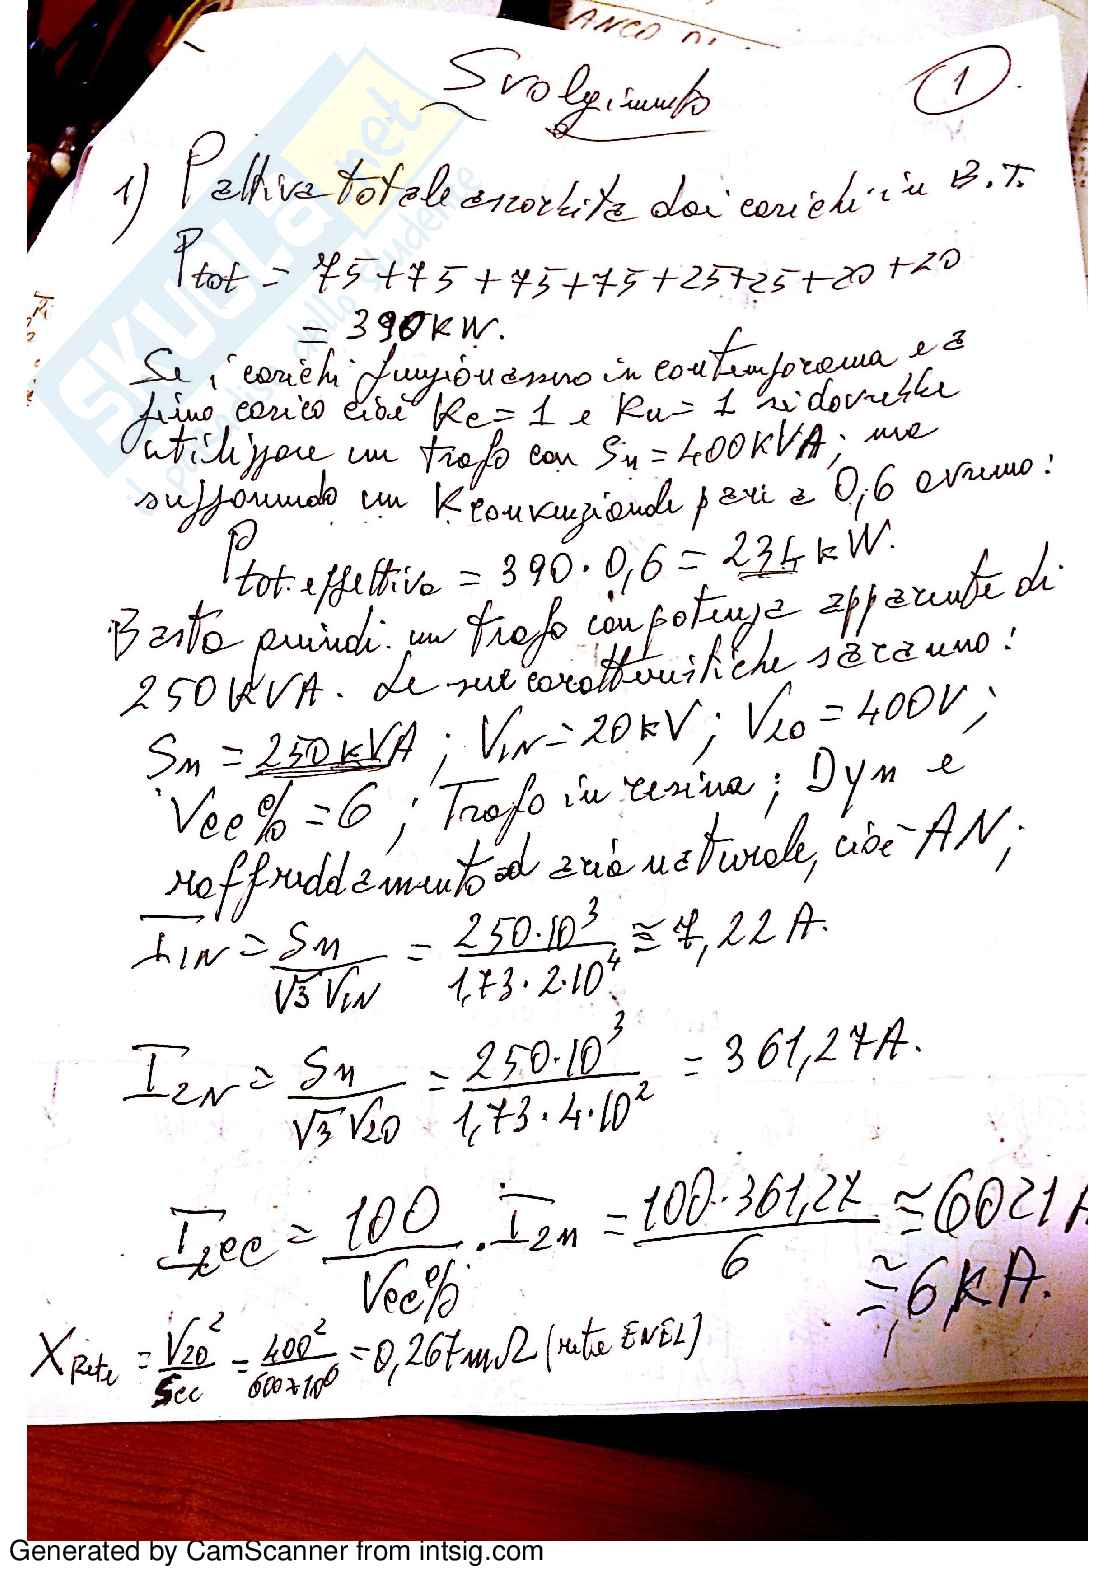 ANCO DI
Svolgimento
1
1) Pattiva totale assorbita dai carichi in B.T.
Ptot = 75+75+75+75+25+25+20+20
= 390kW.
Se i carichi funzionassero in contemporanea e a
pieno carico cioè Kc=1 e Ku=1 si dovrebbe
utilizzare un trafo con Sn=400KVA; ma
supponendo un Kconvenzionale pari a 0,6 avremo:
Ptot.effettiva = 390·0,6 = 234kW.
Basta quindi un trafo con potenza apparente di
250KVA. Le sue caratteristiche saranno:
Sn = 250kVA; V1N=20kV; V20=400V;
Vcc%=6; Trafo in resina; Dyn e
raffreddamento ad aria naturale, cioè AN;
I1N = Sn/√3 V1N = 250·10³/1,73·2·10⁴ ≅ 7,22A.
I2N = Sn/√3 V20 = 250·10³/1,73·4·10² = 361,27A.
I2cc = 100/Vcc% · I2n = 100·361,27/6 ≅ 6021A
≅ 6kA.
XRete = V20²/Scc = 400²/600×10⁶ = 0,267mΩ (rete ENEL)
SKUOLA.net
il paradiso dello studente
Generated by CamScanner from intsig.com